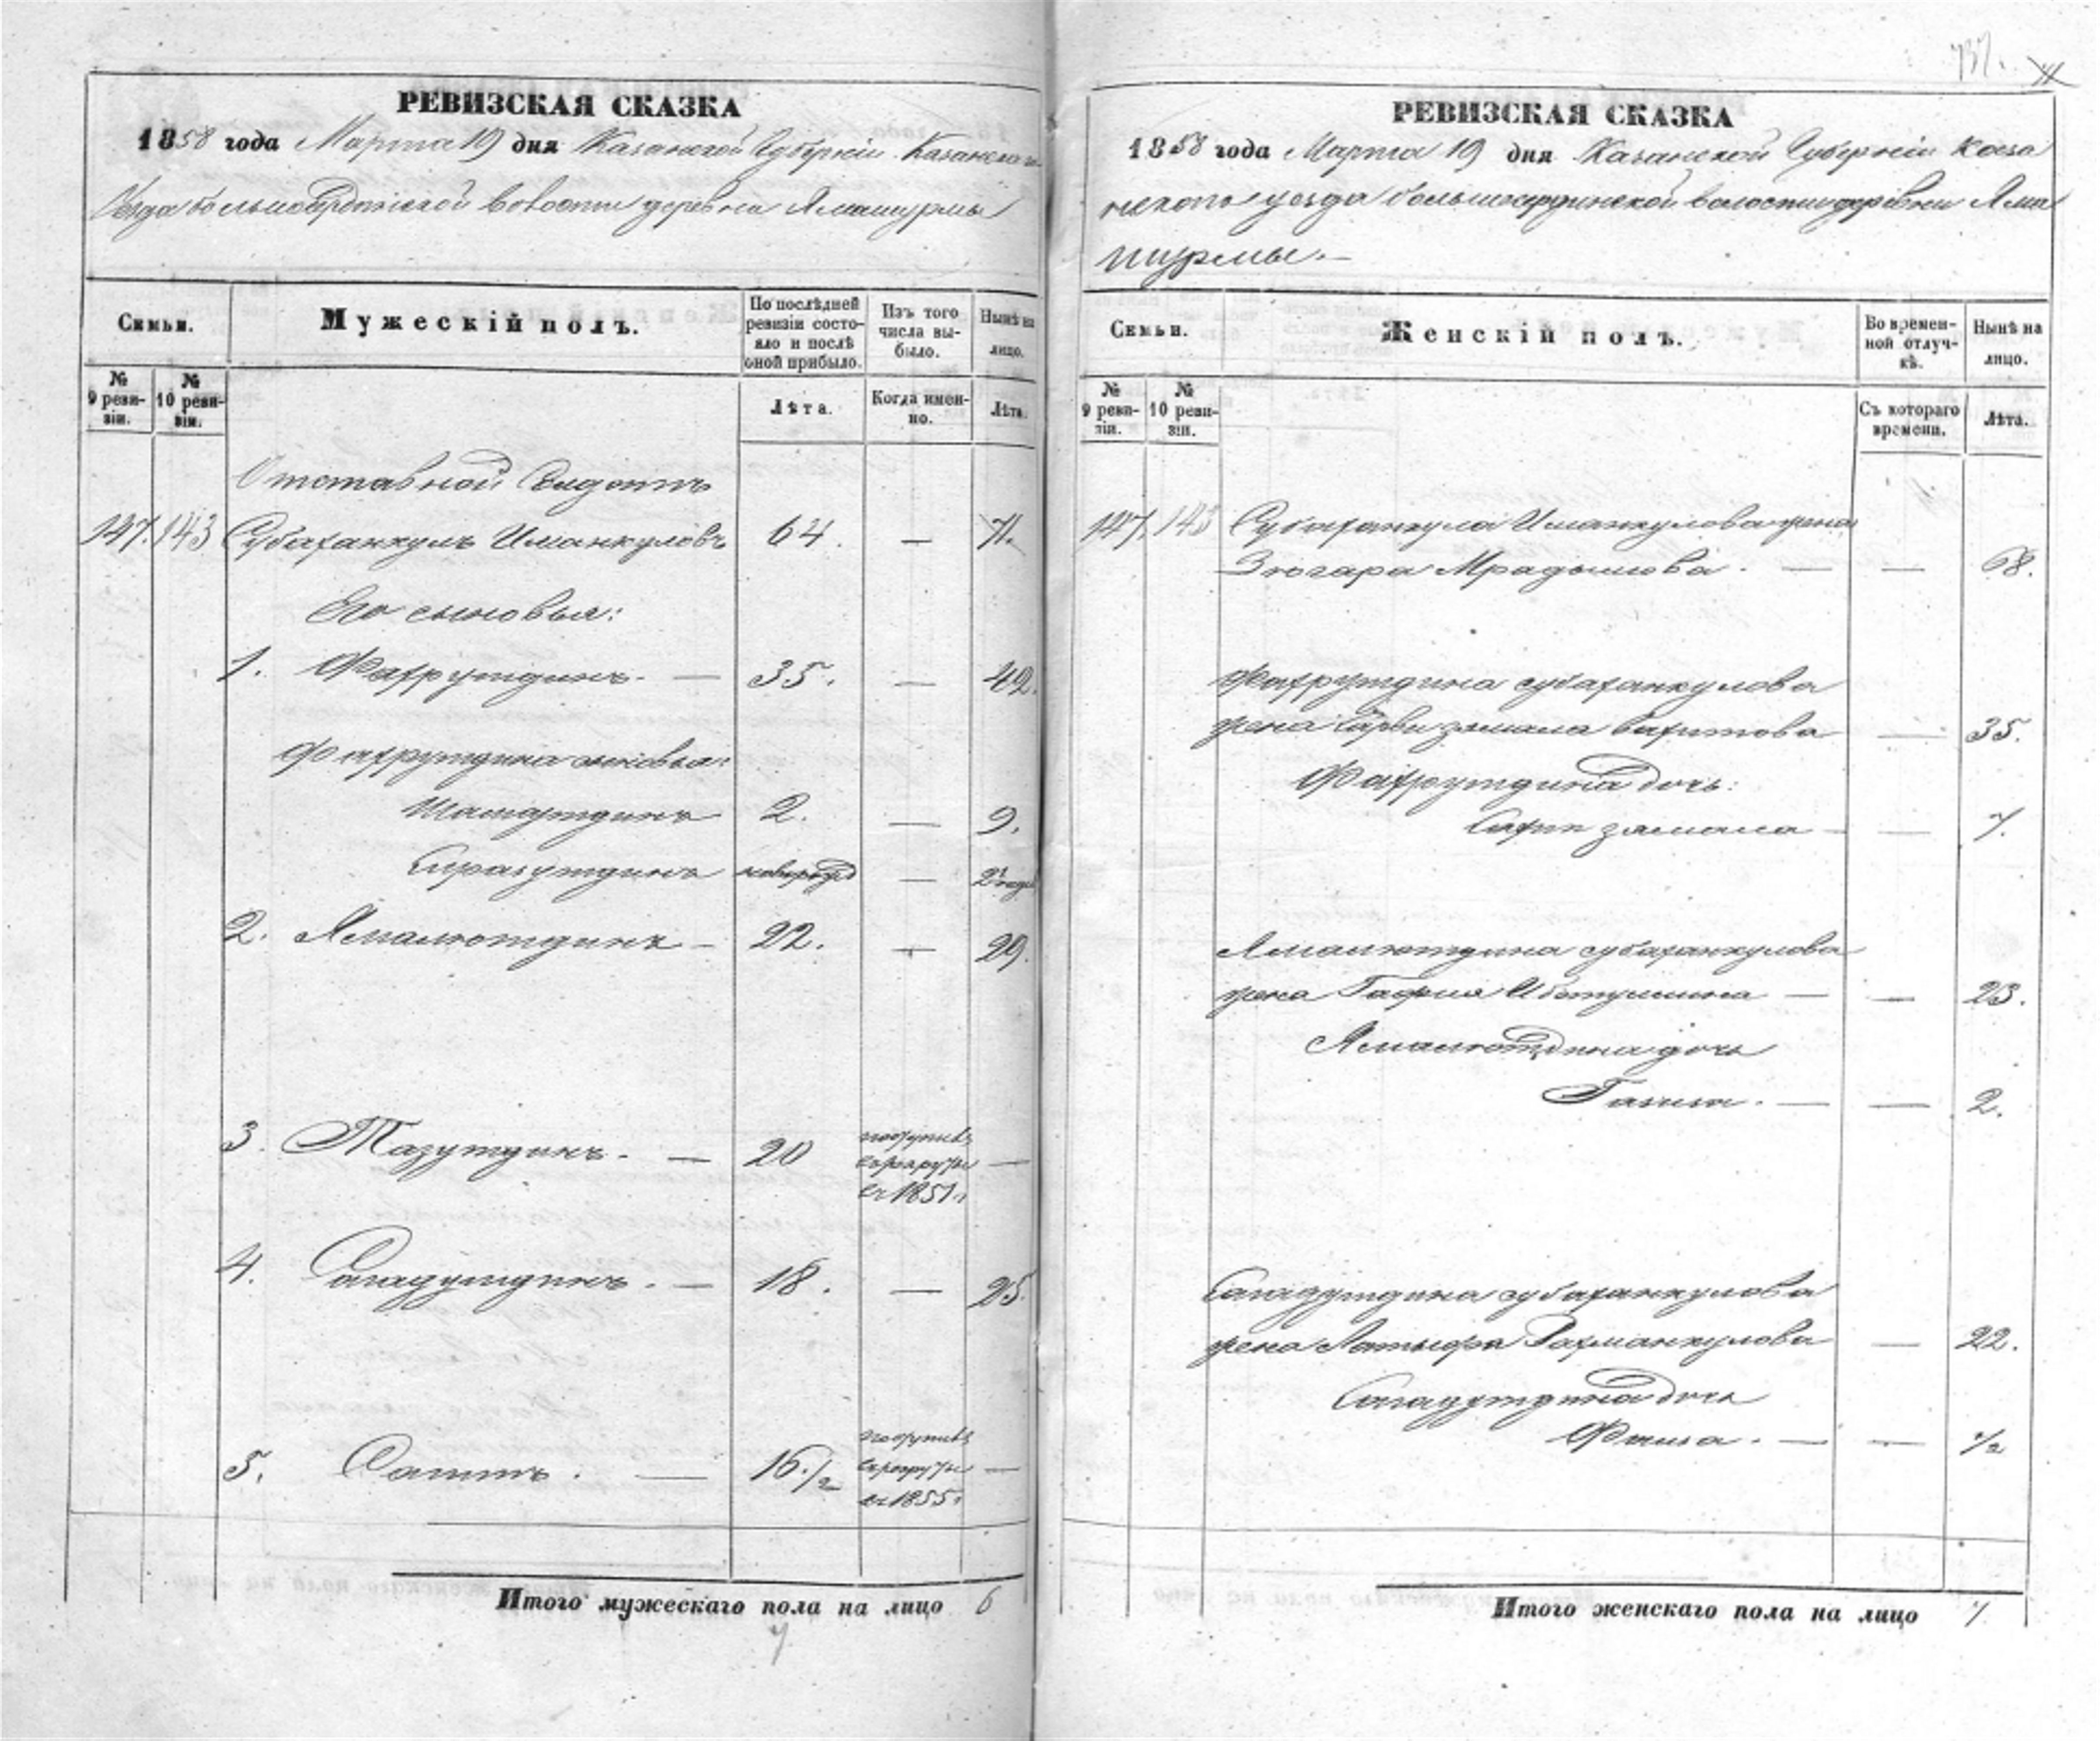 737.
РЕВИЗСКАЯ СКАЗКА
1858 года Марта 19 дня Казанской Губерніи Казанскаго
Уезда большесрдинской волости деревни Ямашурмы
Семьи.
Мужескій полъ.
По послѣдней ревизіи состояло и послѣ оной прибыло.
Изъ того числа выбыло.
Нынѣ на лицо.
№ 9 ревизіи.
№ 10 ревизіи.
Лѣта.
Когда именно.
Лѣта.
Отставной Солдатъ
147. 143 Субаханкулъ Иманкуловъ 64. — 71.
Его сыновья:
1. Фахрутдинъ. — 35. — 42.
Фахрутдина сыновья:
Шамсутдинъ 2. — 9.
Сиразутдинъ новорожд —
2. Ямалютдинъ — 22. — 29.
3. Тазутдинъ. — 20 —
въ 1851.
4. Сагадутдинъ. — 18. — 25.
5. Сагитъ. — 16 1/2 —
въ 1855.
Итого мужескаго пола на лицо 6
7
РЕВИЗСКАЯ СКАЗКА
1858 года Марта 19 дня Казанской Губерніи Каза
нскаго уезда большесрдинской волости деревни Яма
шурмы. —
Семьи.
Женскій полъ.
Во временной отлучкѣ.
Нынѣ на лицо.
№ 9 ревизіи.
№ 10 ревизіи.
Съ котораго времени.
Лѣта.
147. 143 Субаханкула Иманкулова жена
Зюгара — — 68.
Фахрутдина субаханкулова
жена — 35.
Фахрутдина дочь:
замала — — 7.
Ямалютдина субаханкулова
жена Гафия — — 23.
Ямалютдина дочь
— — 2.
Сагадутдина субаханкулова
жена Латыфа Рахманкулова — 22.
Сагадутдина дочь
— — 1/2
Итого женскаго пола на лицо 7